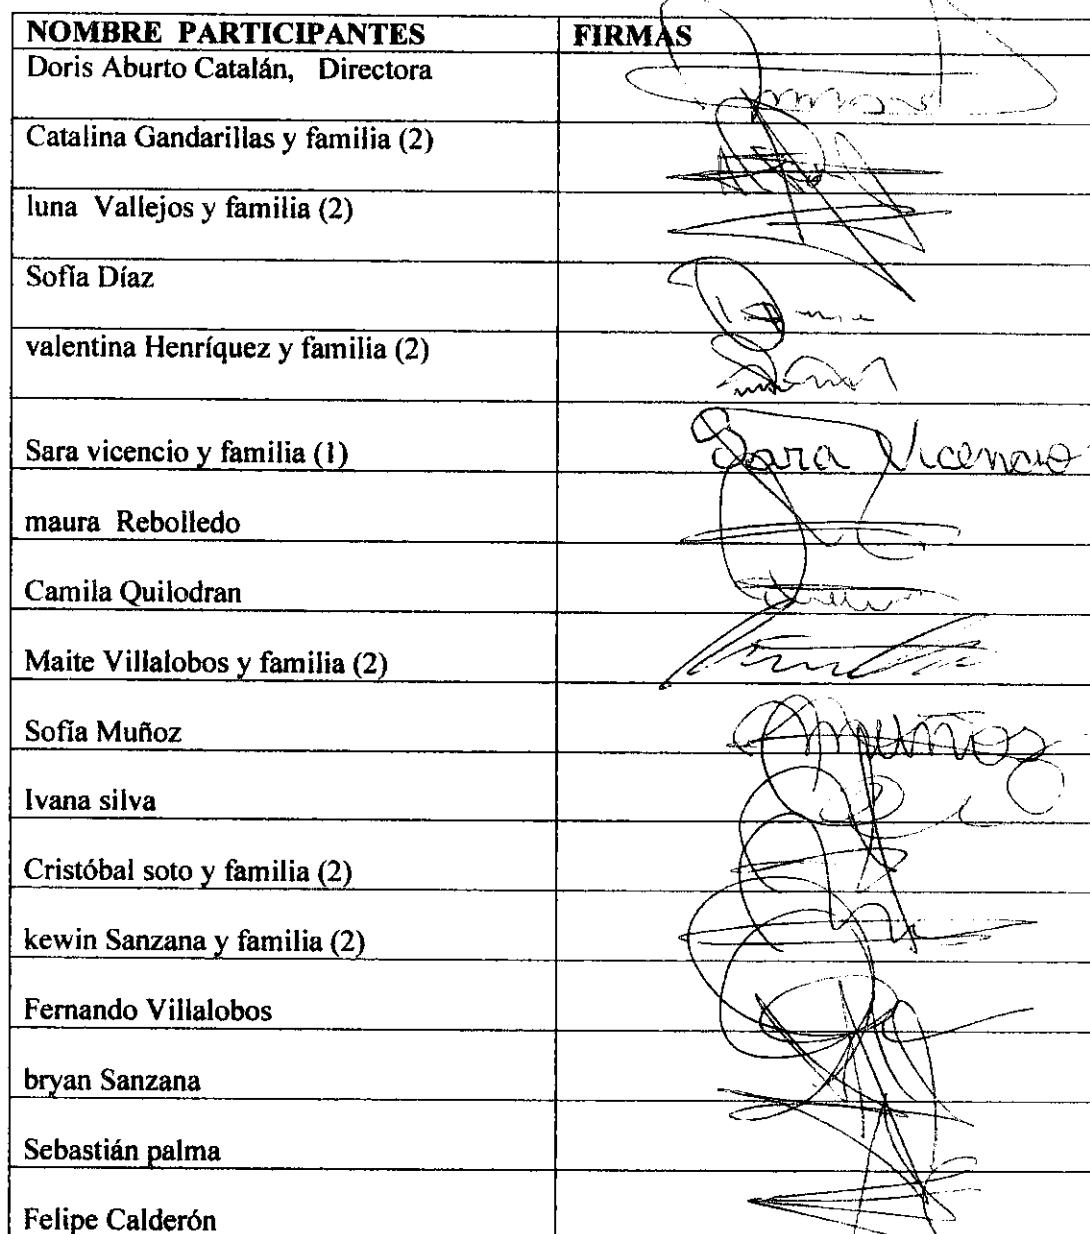 NOMBRE PARTICIPANTES FIRMAS
Doris Aburto Catalán, Directora
Catalina Gandarillas y familia (2)
luna Vallejos y familia (2)
Sofía Díaz
valentina Henríquez y familia (2)
Sara vicencio y familia (1) Sara Vicencio
maura Rebolledo
Camila Quilodran
Maite Villalobos y familia (2)
Sofía Muñoz
Ivana silva
Cristóbal soto y familia (2)
kewin Sanzana y familia (2)
Fernando Villalobos
bryan Sanzana
Sebastián palma
Felipe Calderón